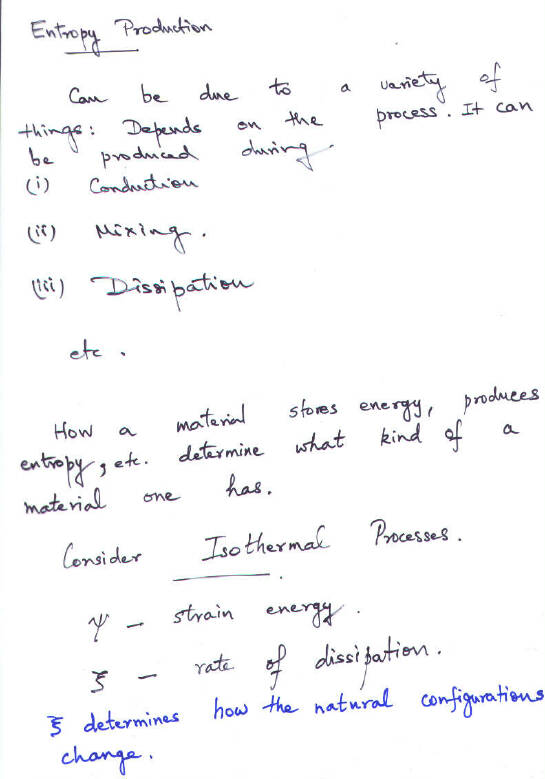 Entropy Production
Can be due to a variety of
things: Depends on the process. It can
be produced during
(i) Conduction
(ii) Mixing.
(iii) Dissipation
etc.
How a material stores energy, produces
entropy, etc. determine what kind of a
material one has.
Consider Isothermal Processes.
ψ – strain energy.
ξ – rate of dissipation.
ξ determines how the natural configurations
change.